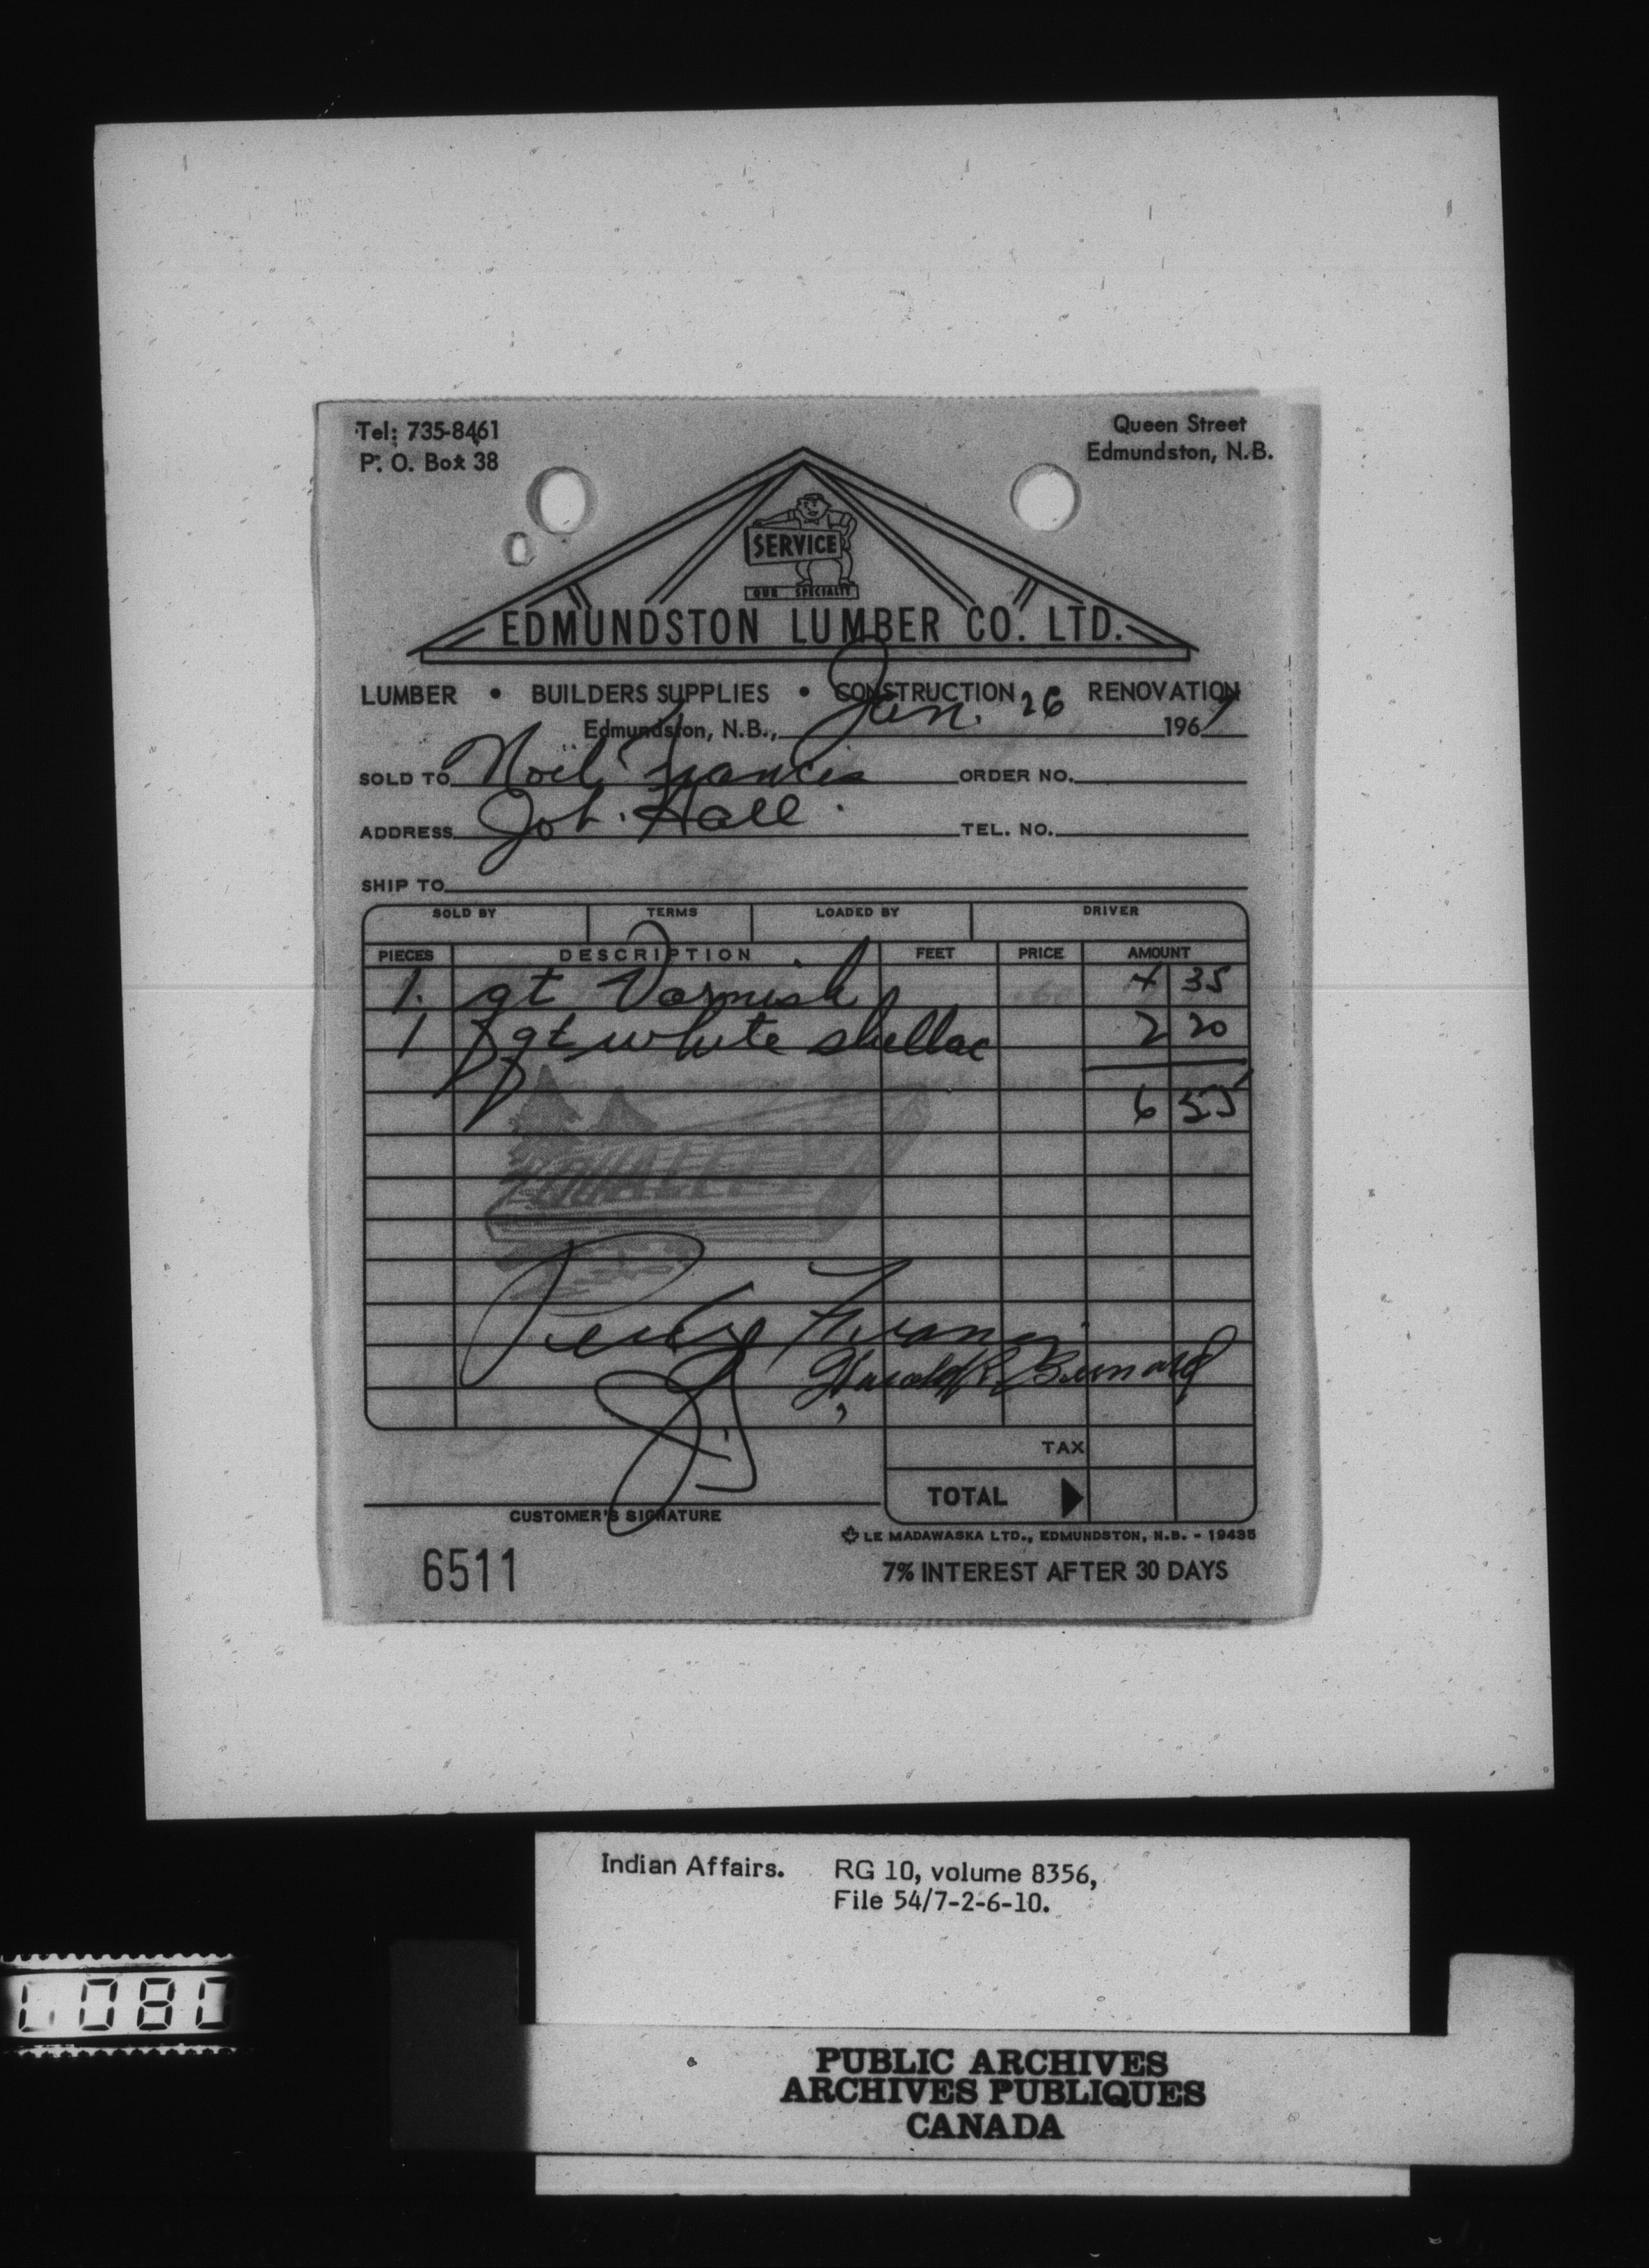 Tel: 735-8461
P. O. Box 38
Queen Street
Edmundston, N.B.
SERVICE
OUR SPECIALTY
EDMUNDSTON LUMBER CO. LTD.
LUMBER • BUILDERS SUPPLIES • CONSTRUCTION RENOVATION
Edmundston, N.B., Jan. 26 1967
SOLD TO Noël Francis ORDER NO.
ADDRESS Job. Hall. TEL. NO.
SHIP TO
SOLD BY TERMS LOADED BY DRIVER
PIECES DESCRIPTION FEET PRICE AMOUNT
1. qt Varnish 4 35
1 qt white shellac 2 20
6 55
Francis
Harold Bernard
TAX
TOTAL
CUSTOMER'S SIGNATURE
LE MADAWASKA LTD., EDMUNDSTON, N.B. - 19435
6511
7% INTEREST AFTER 30 DAYS
Indian Affairs. RG 10, volume 8356,
File 54/7-2-6-10.
080
PUBLIC ARCHIVES
ARCHIVES PUBLIQUES
CANADA